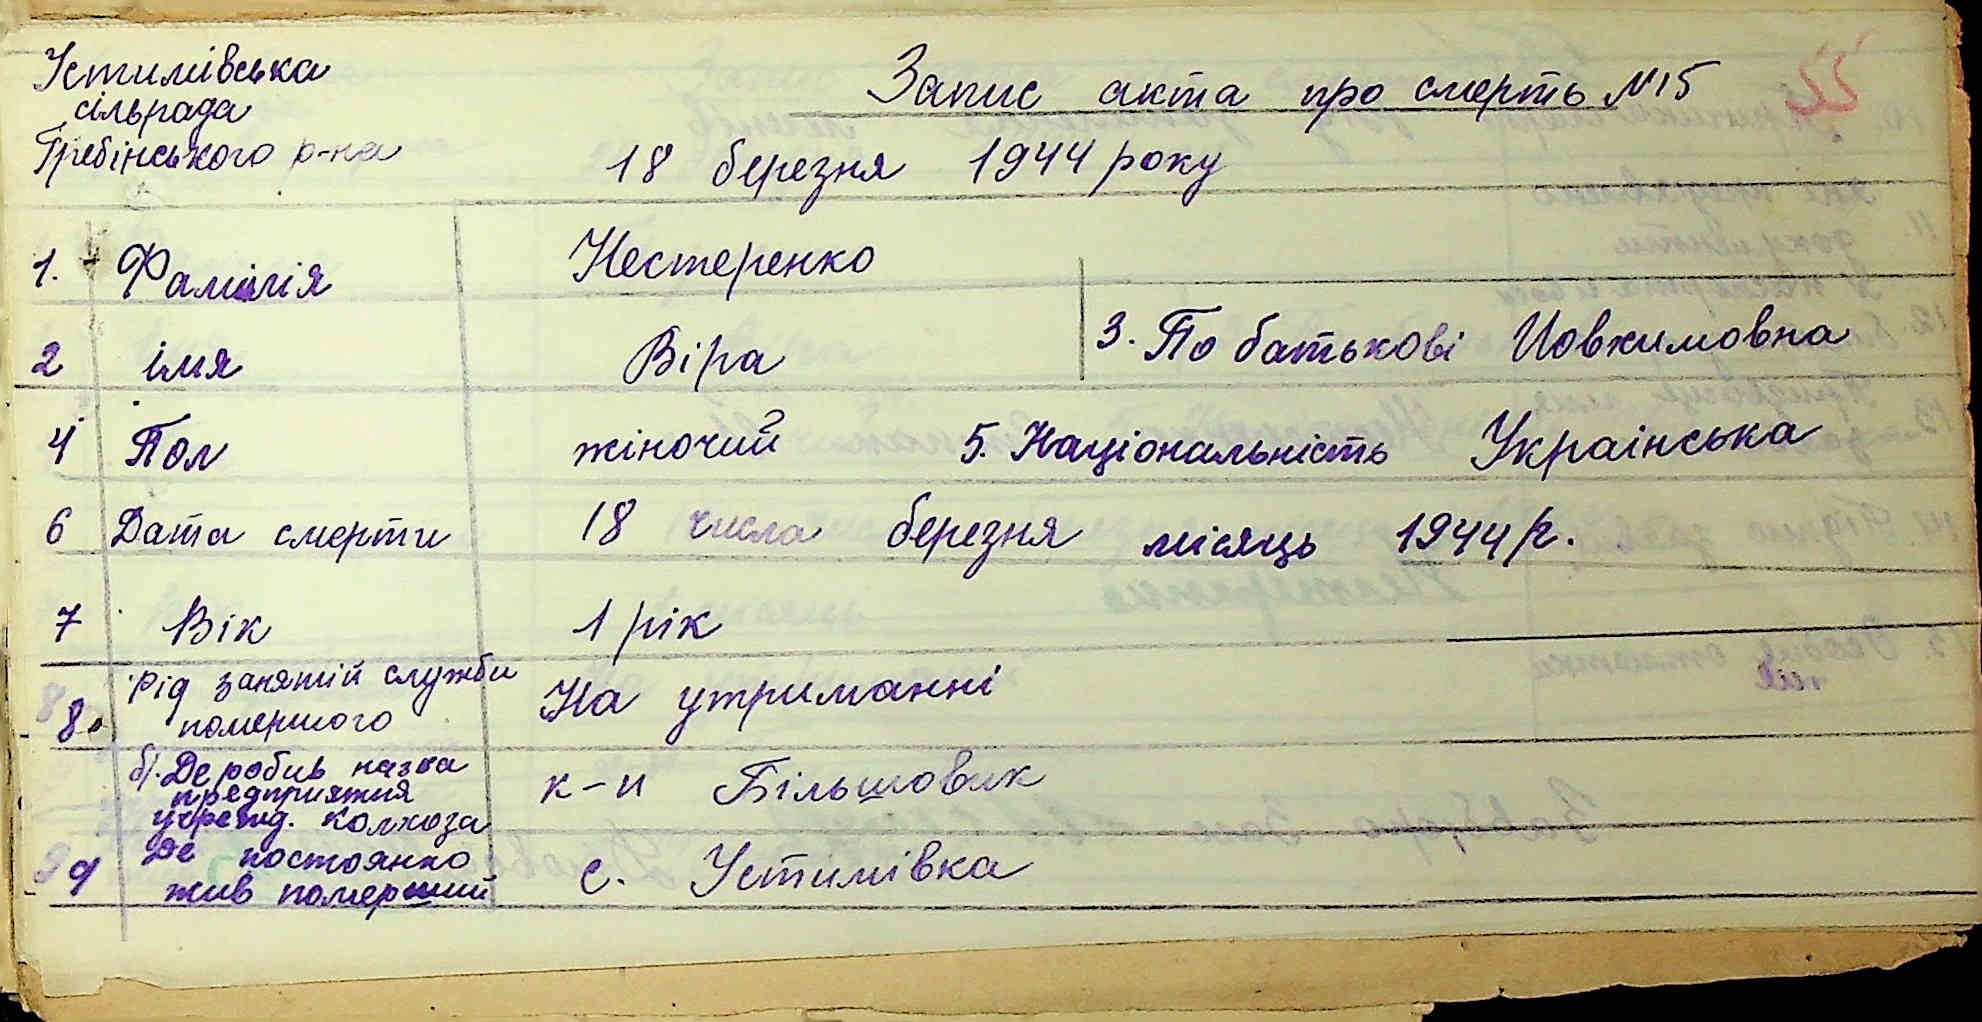 Устимівська
сільрада
Гребінського р-на
Запис акта про смерть №15
55
18 березня 1944 року
1. Фамілія Нестеренко
2 імя Віра 3. По батькові Йовхимовна
4 Пол жіночий 5. Національність Українська
6 Дата смерти 18 числа березня місяць 1944 р.
7 Вік 1 рік
8. Рід занятій служби
помершого
На утриманні
б). Де робив назва
предприятия
учрежд. колхоза
к-п Більшовик
9 Де постоянно
жив померший
с. Устимівка